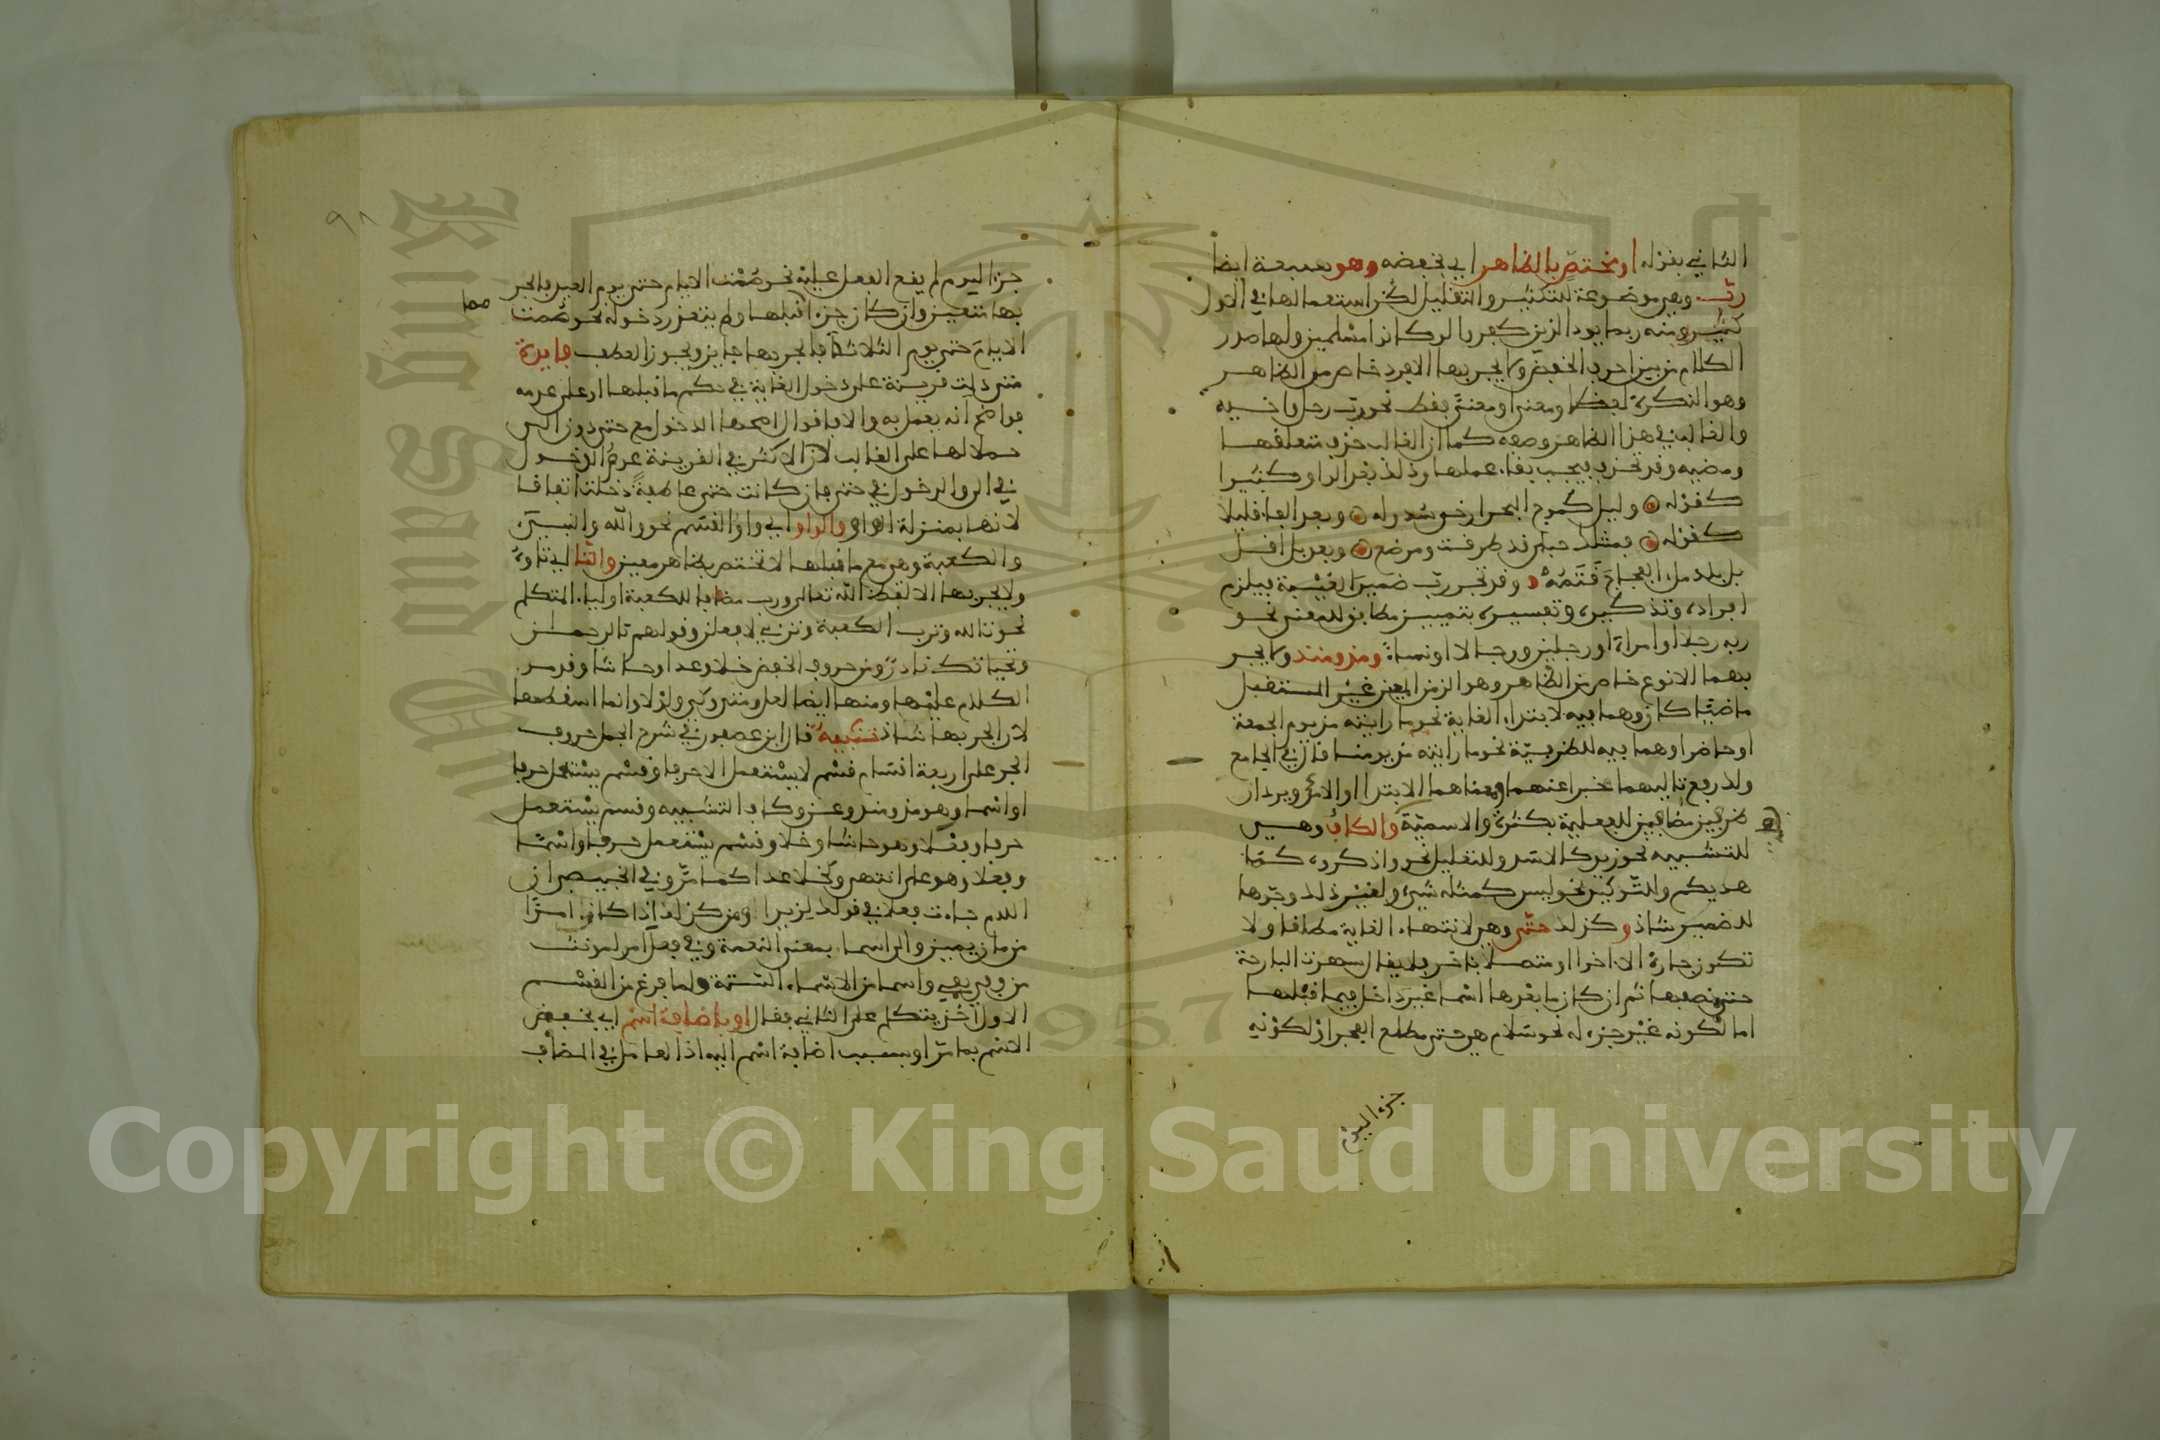 الثاني بقوله او بمختص بالظاهر اي بخفضه وهو سبعة ايضا
رب وهي موضوعة للتكثير والتقليل لكن استعمالها في الاول
كثير ومنه ربما يود الذين كفروا لو كانوا مسلمين ولها صدر
الكلام من بين احرف الخفض ولا يجر بها الا فرد خاص من الظاهر
وهو النكرة لفظا ومعنى او معنى فقط نحو رب رجل واخيه
والغالب في هذا الظاهر وصفه كما ان الغالب حذف متعلقها
ومضيه وقد تحذف فيجب بقاء عملها وذلك بعد الواو كثيرا
كقوله وليل كموج البحر ارخى سدوله وبعد الفاء قليلا
كقوله فمثلك حبلى قد طرقت ومرضع وبعد بل اقل
بل بلد ملء الفجاج قتمه وقد تجر رب ضمير الغيبة فيلزم
افراده وتذكيره وتفسيره بتمييز مطابق للمعنى نحو
ربه رجلا او امراة او رجلين او رجالا او نساء ومذ ومنذ ولا يجر
بهما الا نوع خاص من الظاهر وهو الزمن المعين غير المستقبل
ماضيا كان وهما فيه لابتداء الغاية نحو ما رايته مذ يوم الجمعة
او حاضرا وهما فيه للظرفية نحو ما رايته مذ يومنا قال في الجامع
ولك رفع تاليهما خبرا عنهما ومعناهما الابتدا او الامد ويردان
ظرفين مضافين للفعلية بكثرة والاسمية والكاف وهي
للتشبيه نحو زيد كالاسد وللتعليل نحو واذكروه كما
هديكم وللتوكيد نحو ليس كمثله شيء ولغير ذلك وجرها
للضمير شاذ وكذلك حتى وهي لانتهاء الغاية مطلقا ولا
تكون جارة الا اخرا او متصلا باخر فلا يقال سهرت البارحة
حتى نصفها ثم ان كان ما بعدها اسما غير داخل فيما قبلها
اما لكونه غير جزء له نحو سلام هي حتى مطلع الفجر او لكونه
جزءا ليوم
جزءا ليوم لم يقع الفعل عليه نحو صمت الايام حتى يوم العيد فالجر
بها متعين وان كان جزء قبلها ولم يتعذر دخوله نحو صمت
الايام حتى يوم الثلاثا فالجر بها جايز ويجوز العطف فايدة
متى دلت قرينة على دخول الغاية في حكم ما قبلها او على عدمه
فواضح انه يعمل به والا فاقوال اصحها الدخول مع حتى دون الى
حملا لها على الغالب لان الاكثر في القرينة عدم الدخول
في الى والدخول في حتى فان كانت حتى عاطفة دخلت اتفاقا
لانها بمنزلة الواو والواو اي واو القسم نحو والله والنبيين
والكعبة وهي مع ما قبلها لا تختص بظاهر معين والتا اي تاؤه
ولا يجر بها الا لفظ الله تعالى ورب مضافا للكعبة او لياء المتكلم
نحو تالله وترب الكعبة وتربي لافعلن وقولهم تالرحمن
وتحياتك نادر ومن حروف الخفض خلا وعدا وحاشا وقد مر
الكلام عليها ومنها ايضا لعل ومتى وكي ولولا وانما اسقطها
لان الجر بها شاذ تنبيه قال ابن عصفور في شرح الجمل حروف
الجر على اربعة اقسام قسم لا يستعمل الا حرفا وقسم يستعمل حرفا
او اسما وهو مذ ومنذ وعن وكاف التشبيه وقسم يستعمل
حرفا وفعلا وهو حاشا وخلا وقسم يستعمل حرفا واسما
وفعلا وهو على انتهى وكخلا عدا كما مر وفي الخبيصي ان
اللام جاءت فعلا في قولك لزيدا ومن كذلك اذا كان امرا
من مان يمين والى اسما بمعنى النعمة وفي فعل امر لمونث
من وفى يفي واسما من الاسماء الستة ولما فرغ من القسم
الاول اخذ يتكلم على الثاني فقال او باضافة اسم اي بخفض
الاسم بما مر او بسبب اضافة اسم اليه اذ العامل في المضاف